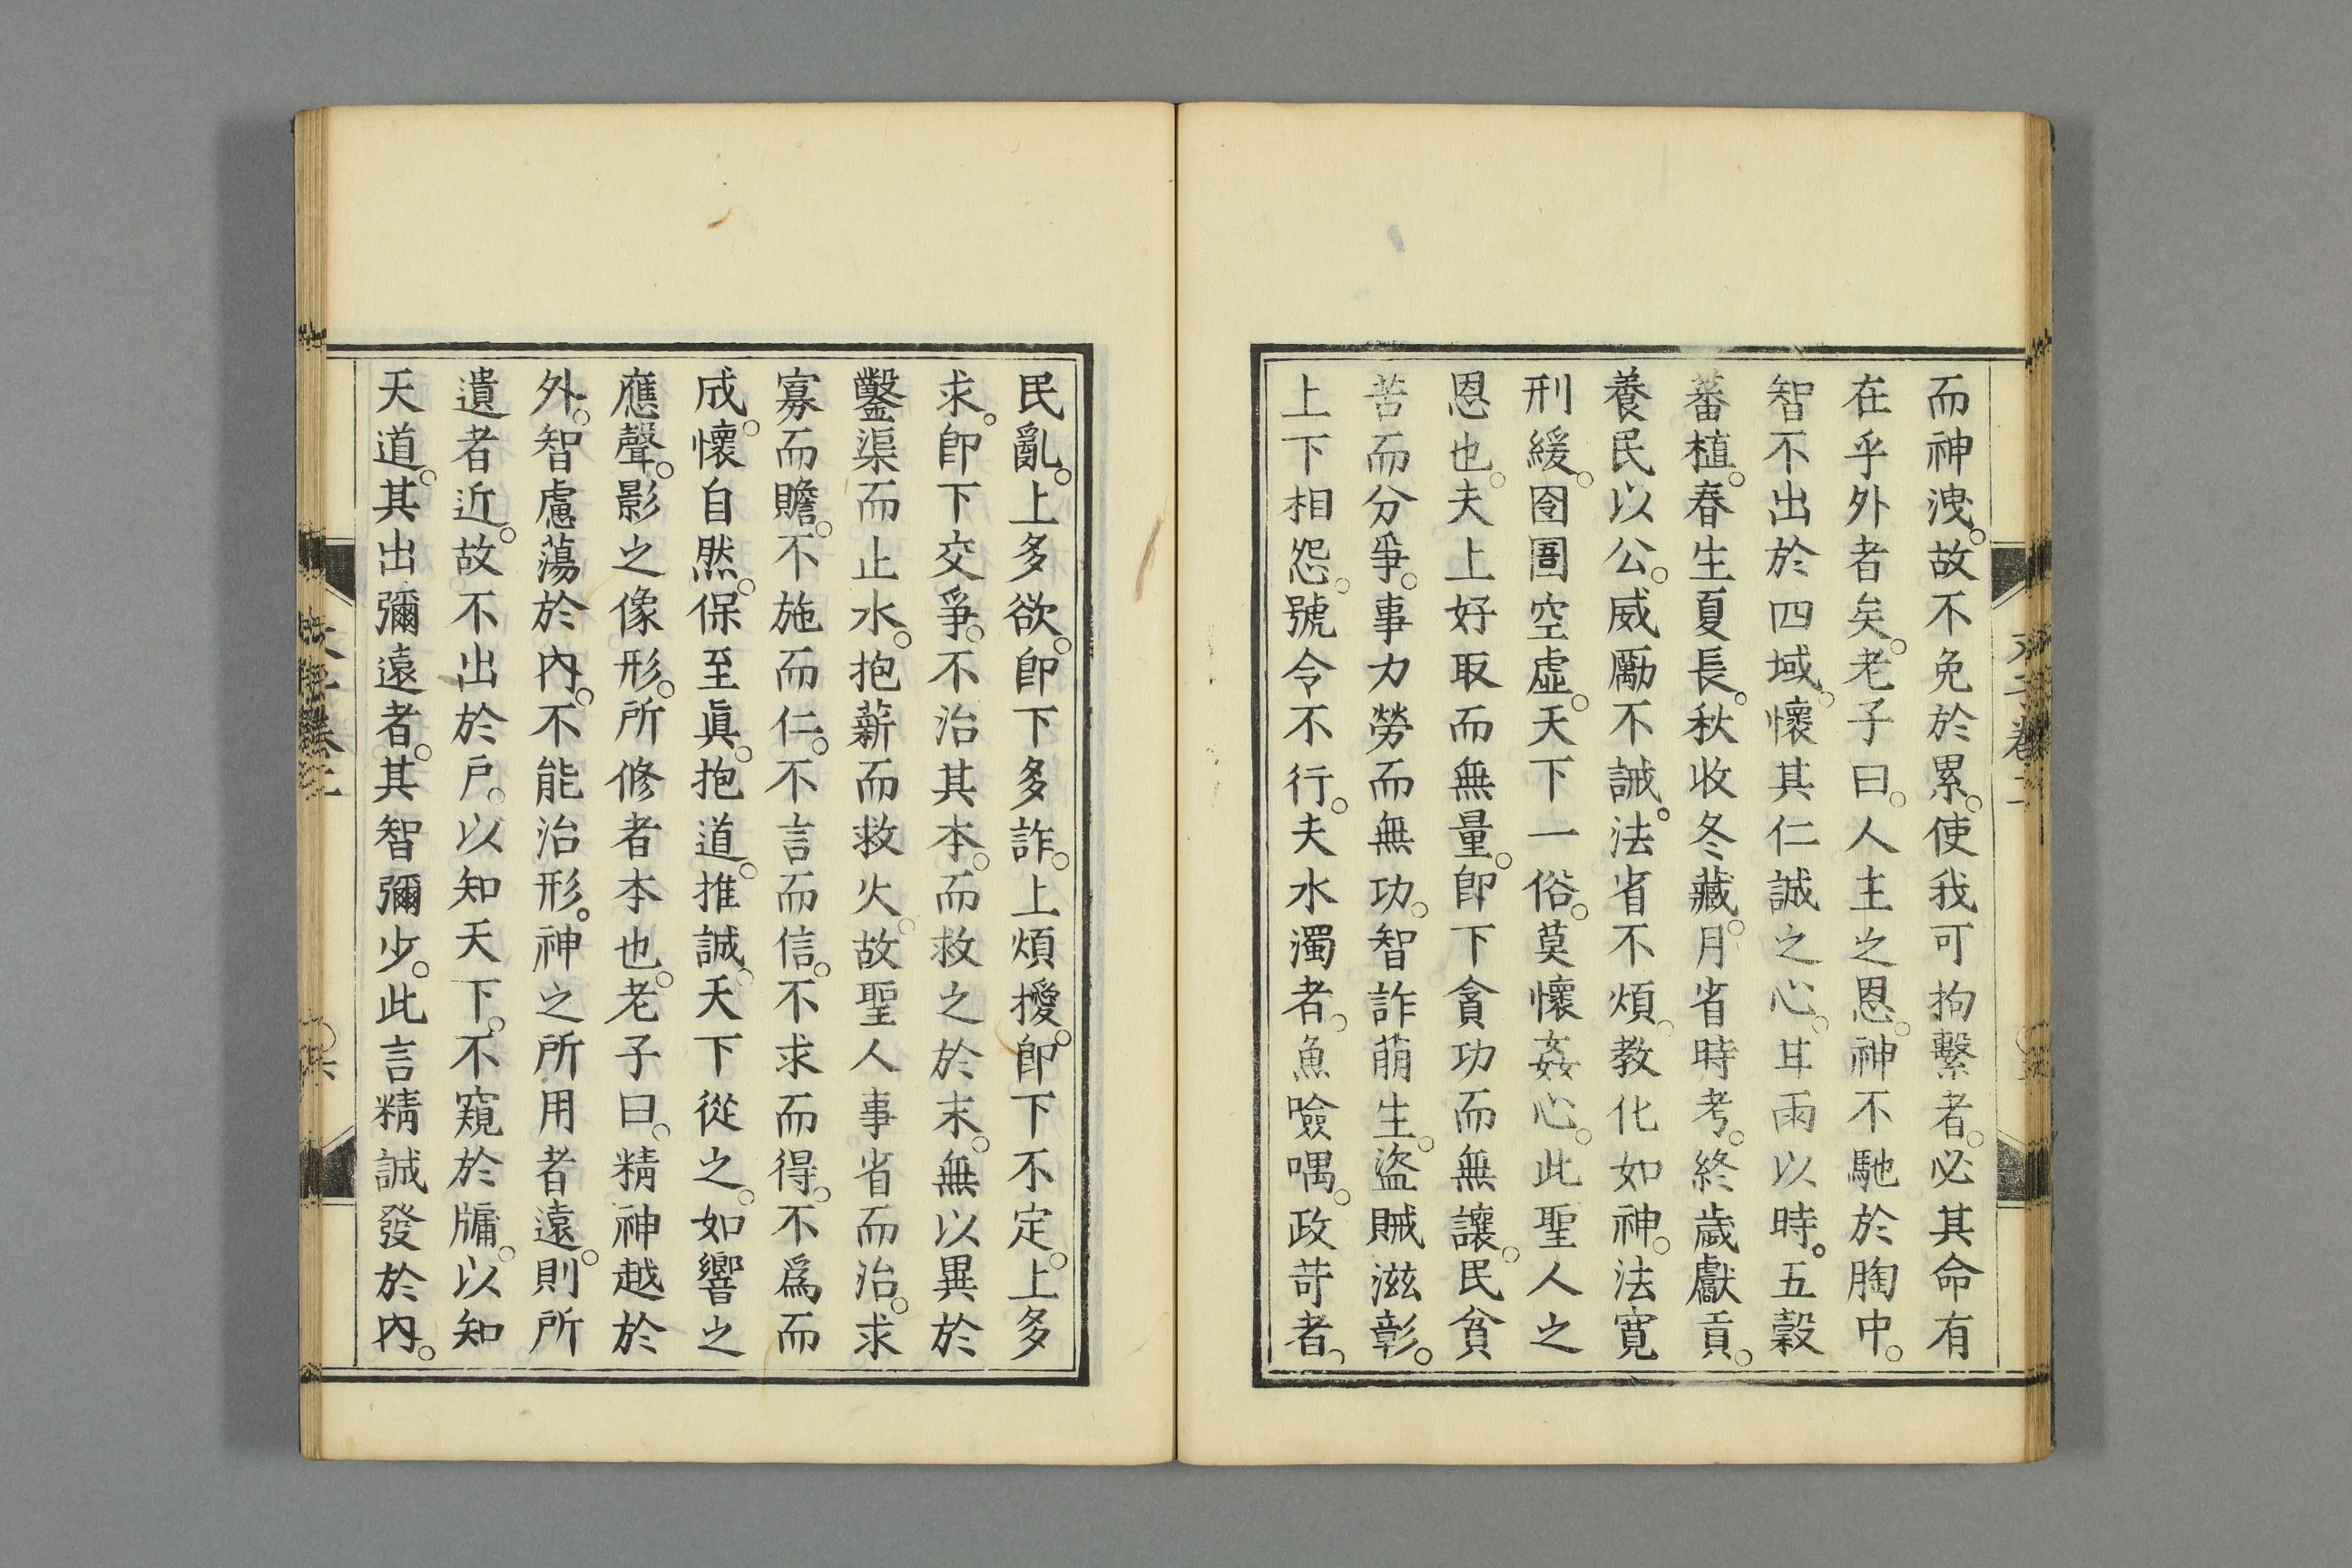 而神洩。故不免於累。使我可拘繫者。必其命有
在乎外者矣。老子曰。人主之恩。神不馳於胸中。
智不出於四域。懷其仁誠之心。甘雨以時。五穀
蕃植。春生夏長。秋收冬藏。月省時考。終歲獻貢。
養民以公。威勵不誡。法省不煩。教化如神。法寬
刑緩。囹圄空虛。天下一俗。莫懷姦心。此聖人之
恩也。夫上好取而無量。卽下貪功而無讓。民貧
苦而分爭。事力勞而無功。智詐萌生。盜賊滋彰。
上下相怨。號令不行。夫水濁者。魚噞喁。政苛者。
民亂。上多欲。卽下多詐。上煩擾。卽下不定。上多
求。卽下交爭。不治其本。而救之於末。無以異於
鑿渠而止水。抱薪而救火。故聖人事省而治。求
寡而贍。不施而仁。不言而信。不求而得。不爲而
成。懷自然。保至眞。抱道。推誠。天下從之。如響之
應聲。影之像形。所修者本也。老子曰。精神越於
外。智慮蕩於內。不能治形。神之所用者遠。則所
遺者近。故不出於戶。以知天下。不窺於牖。以知
天道。其出彌遠者。其智彌少。此言精誠發於內。